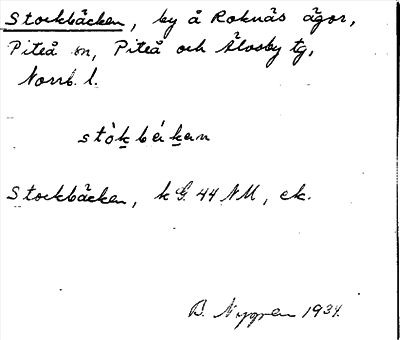 Stockbäcken, by å Roknäs ägor,
Piteå sn, Piteå och Älvsby tg,
Norrb. l.
stòkbẹ́kan
Stockbäcken, k G. 44 NM, ek.
D. Nygren 1934.